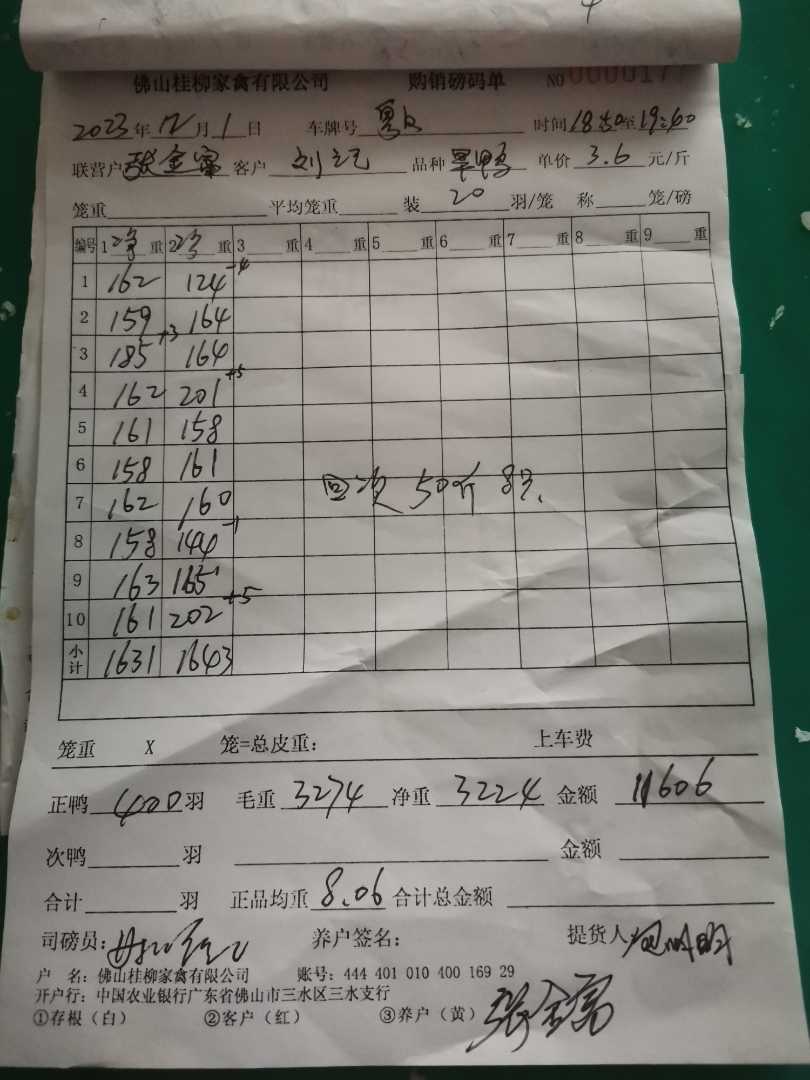 佛山桂柳家禽有限公司 购销磅码单 NO 0000177
2023年12月1日 车牌号 时间18:50至19:40
联营户张金富 客户刘 品种旱鸭 单价3.6元/斤
笼重 平均笼重 装20羽/笼 称 笼/磅
编号 1净重 2净重 3 重 4 重 5 重 6 重 7 重 8 重 9 重
1 162 124 -4
2 159 164
3 185 +3 164
4 162 201 +5
5 161 158
6 158 161
回次 50斤 8只
7 162 160
8 158 144 -1
9 163 165
10 161 202 +5
小计 1631 1643
笼重 X 笼=总皮重: 上车费
正鸭400羽 毛重3274 净重3224 金额11606
次鸭 羽 金额
合计 羽 正品均重8.06 合计总金额
司磅员: 养户签名: 提货人
户 名: 佛山桂柳家禽有限公司 账号: 444 401 010 400 169 29
开户行: 中国农业银行广东省佛山市三水区三水支行
①存根(白) ②客户(红) ③养户(黄) 张金富